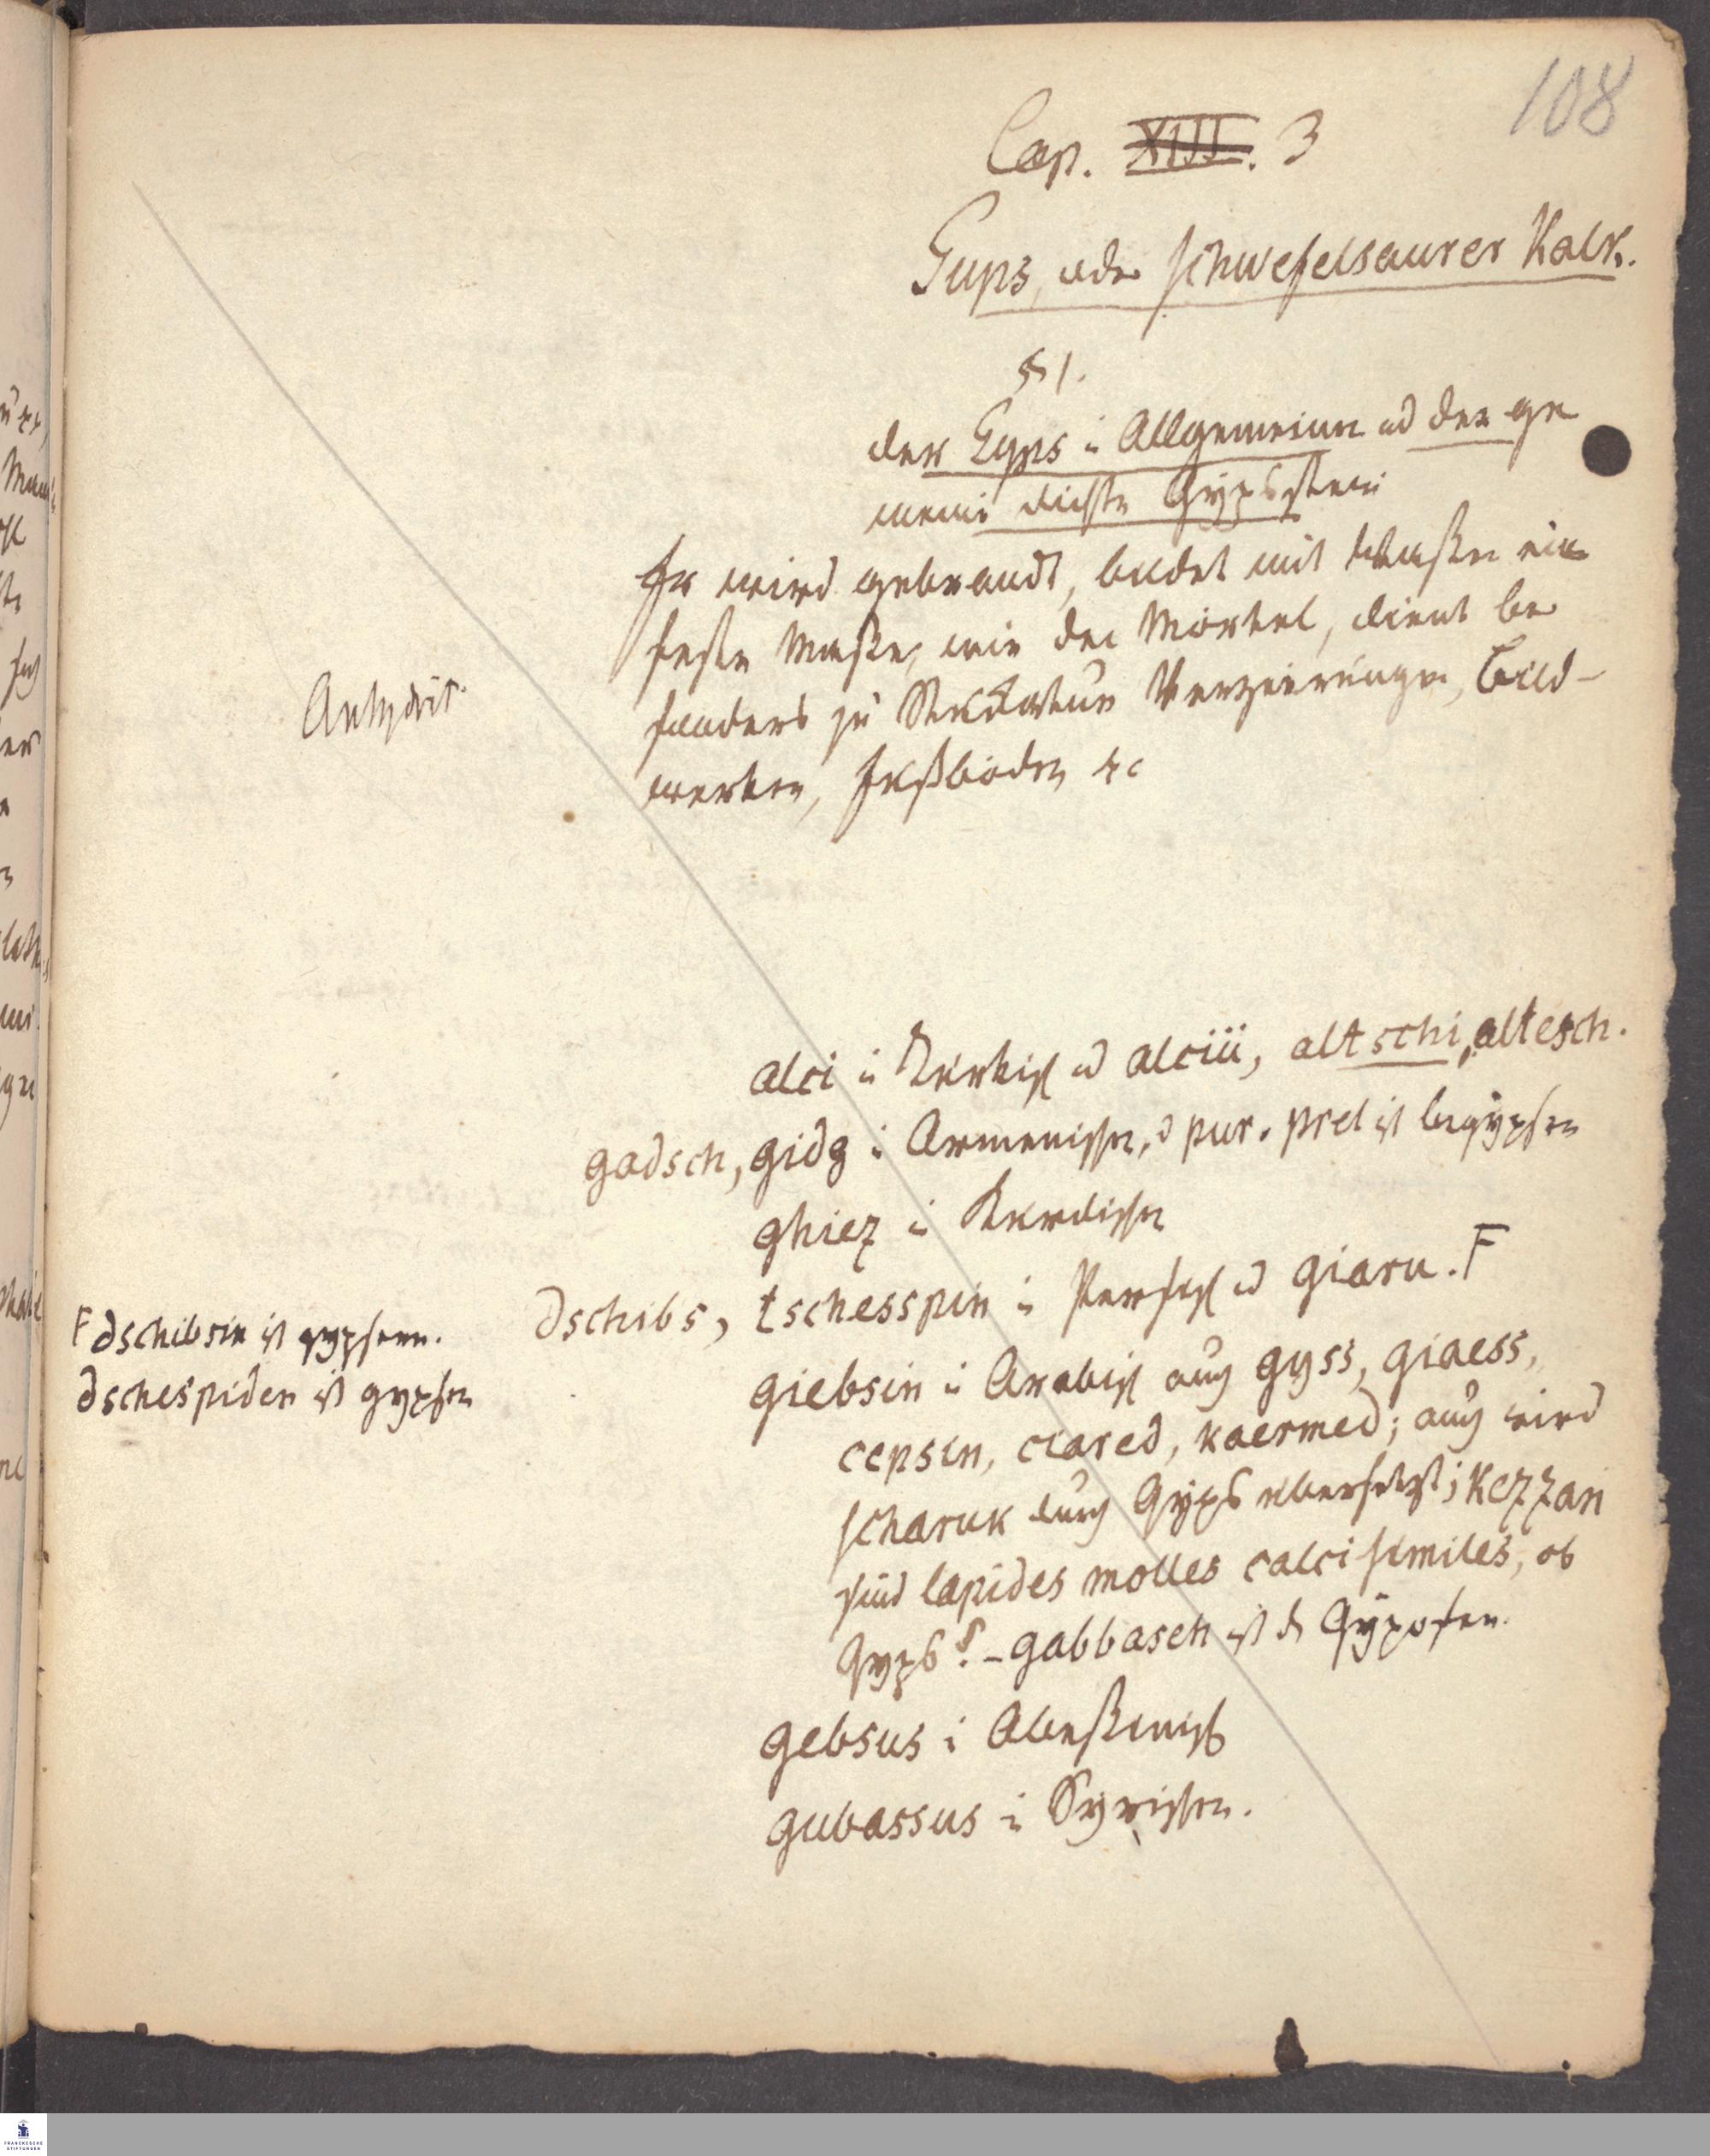 108
Cap. XIII. 3
Gyps, oder schwefelsaurer Kalk.
§ 1.
der Gyps i Allgemeinen ud der ge
meine dichte Gypsstein
Er wird gebrandt, bildet mit Waßer eine
feste Maße, wie der Mörtel, dient be
sonders zu Stukatur Verzierungen, Bild-
werken, Fußböden ꝛc
Anhydrit.
alci i Türkisch ud alciii, altschi, altesch.
gadsch, gidg i Armenischen, d pur. pret ist begypsen
ghiez i Kurdischen
dschibs, tschesspin i Persisch ud giaru. F
F dschibsin ist gypsern.
dschespiden ist gypsen
giebsin i Arabisch auch gyss, giaess,
cepsin, ciared, kaermed; auch wird
scharuk durch Gyps übersetzt; Kezzan
sind lapides molles calci similes, ob
Gyps? - gabbasch ist d Gypsofen.
gebsus i Abeßinisch
gubassus i Syrischen.
FRANCKESCHE
STIFTUNGEN